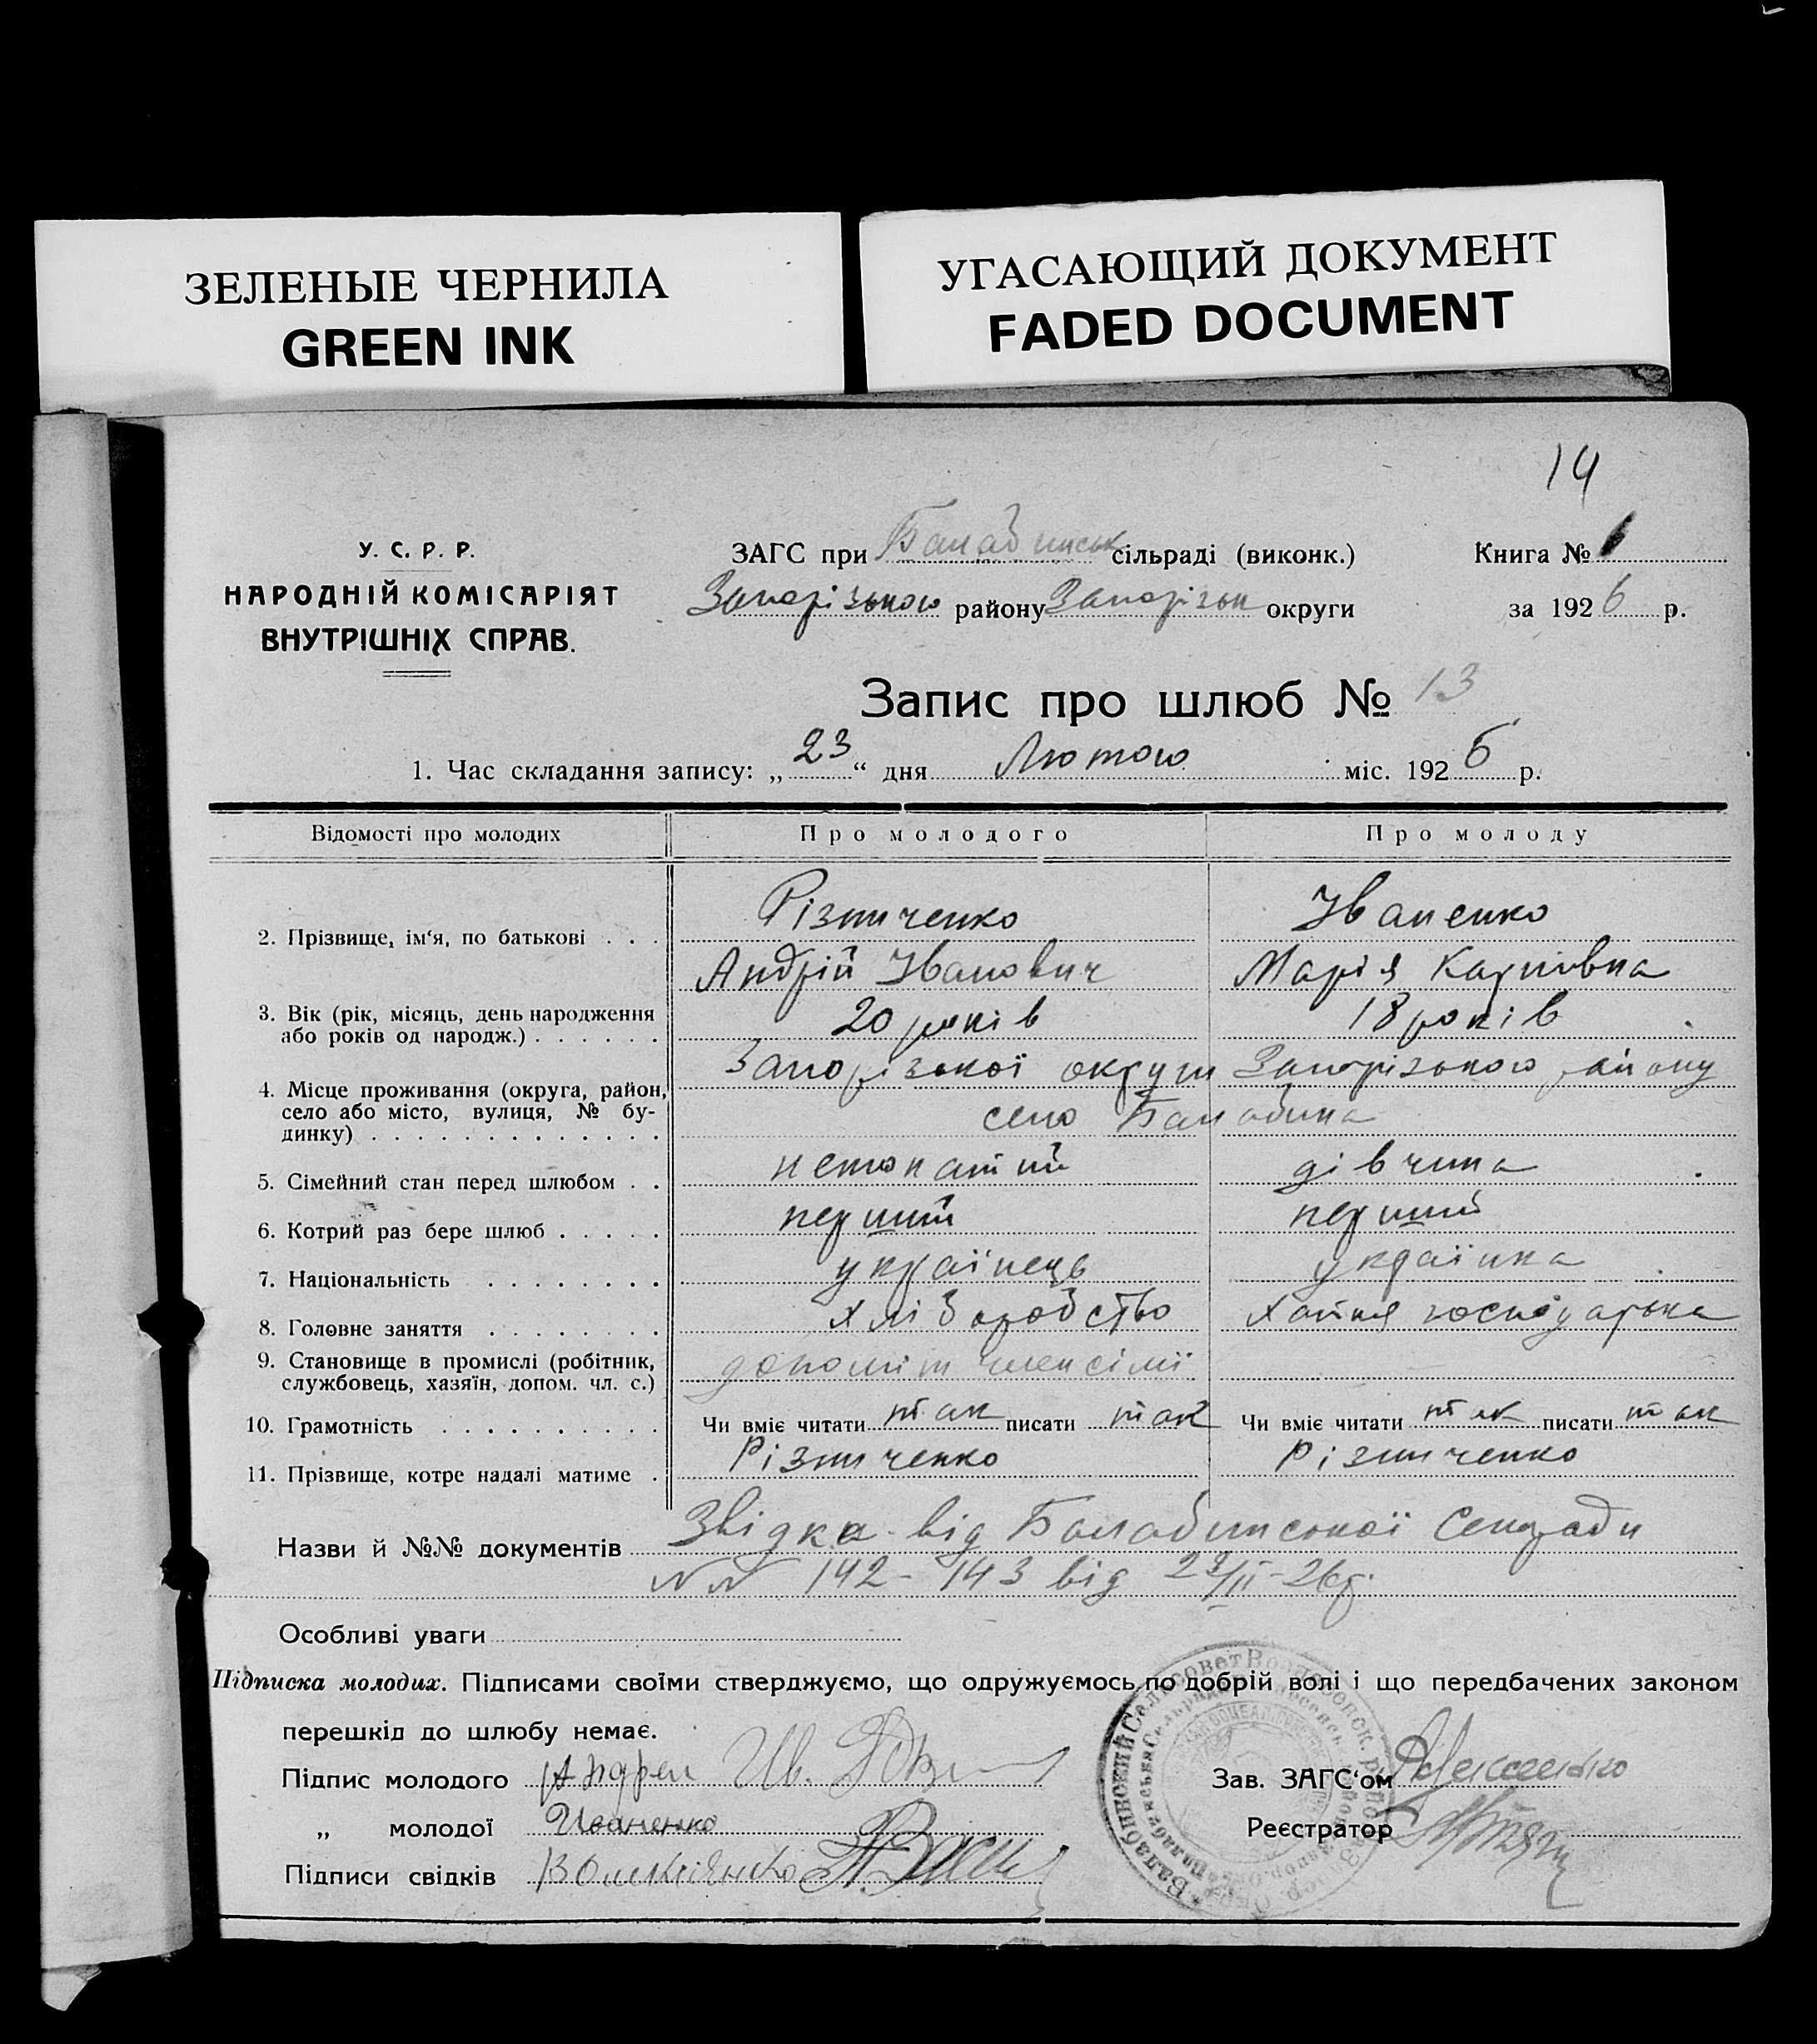 ЗЕЛЕНЫЕ ЧЕРНИЛА
GREEN INK
УГАСАЮЩИЙ ДОКУМЕНТ
FADED DOCUMENT
14
У. С. Р. Р.
НАРОДНІЙ КОМІСАРІЯТ
ВНУТРІШНІХ СПРАВ.
ЗАГС при Балабинськ сільраді (виконк.)
Запорізького району Запорізьк округи
Книга №
за 1926 р.
Запис про шлюб № 13
1. Час складання запису: „23“ дня Лютого міс. 1926 р.
Відомості про молодих Про молодого Про молоду
2. Прізвище, ім‘я, по батькові . . . Різниченко Іваненко
Андрій Іванович Марія Карпівна
3. Вік (рік, місяць, день народження або років од народж.) . . . . . . 20 років 18 років
4. Місце проживання (округа, район, село або місто, вулиця, № будинку) . . . . . . . . . . . . . Запорізької округи Запорізького району
село Балабина
5. Сімейний стан перед шлюбом . . нежонатий дівчина
6. Котрий раз бере шлюб . . . . . перший перший
7. Національність . . . . . . . . українець українка
8. Головне заняття . . . . . . . . хліборобство Хатня господарька
9. Становище в промислі (робітник, службовець, хазяїн, допом. чл. с.) член сімії
10. Грамотність . . . . . . . . . . Чи вміє читати так писати так Чи вміє читати так писати так
11. Прізвище, котре надалі матиме . Різниченко Різниченко
Назви й №№ документів Звідка від Балабинської Сельради
NN 142-143 від 23/II-26р.
Особливі уваги
Підписка молодих. Підписами своїми стверджуємо, що одружуємось по добрій волі і що передбачених законом
перешкід до шлюбу немає.
Підпис молодого Андрей Ив.
„ молодої Иваненко
Підписи свідків
Зав. ЗАГС‘ом
Реєстратор
Балабинский Сельсовет